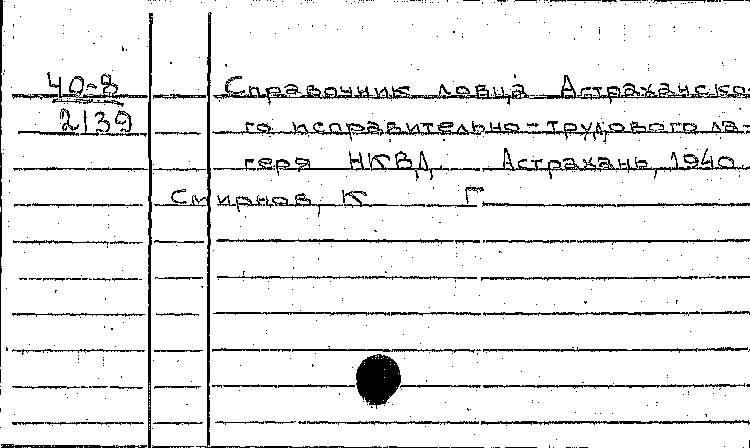 40-8 Справочник ловца Астраханско-
2139 го исправительно-трудового ла-
геря НКВД. Астрахань, 1940
Смирнов, К Г